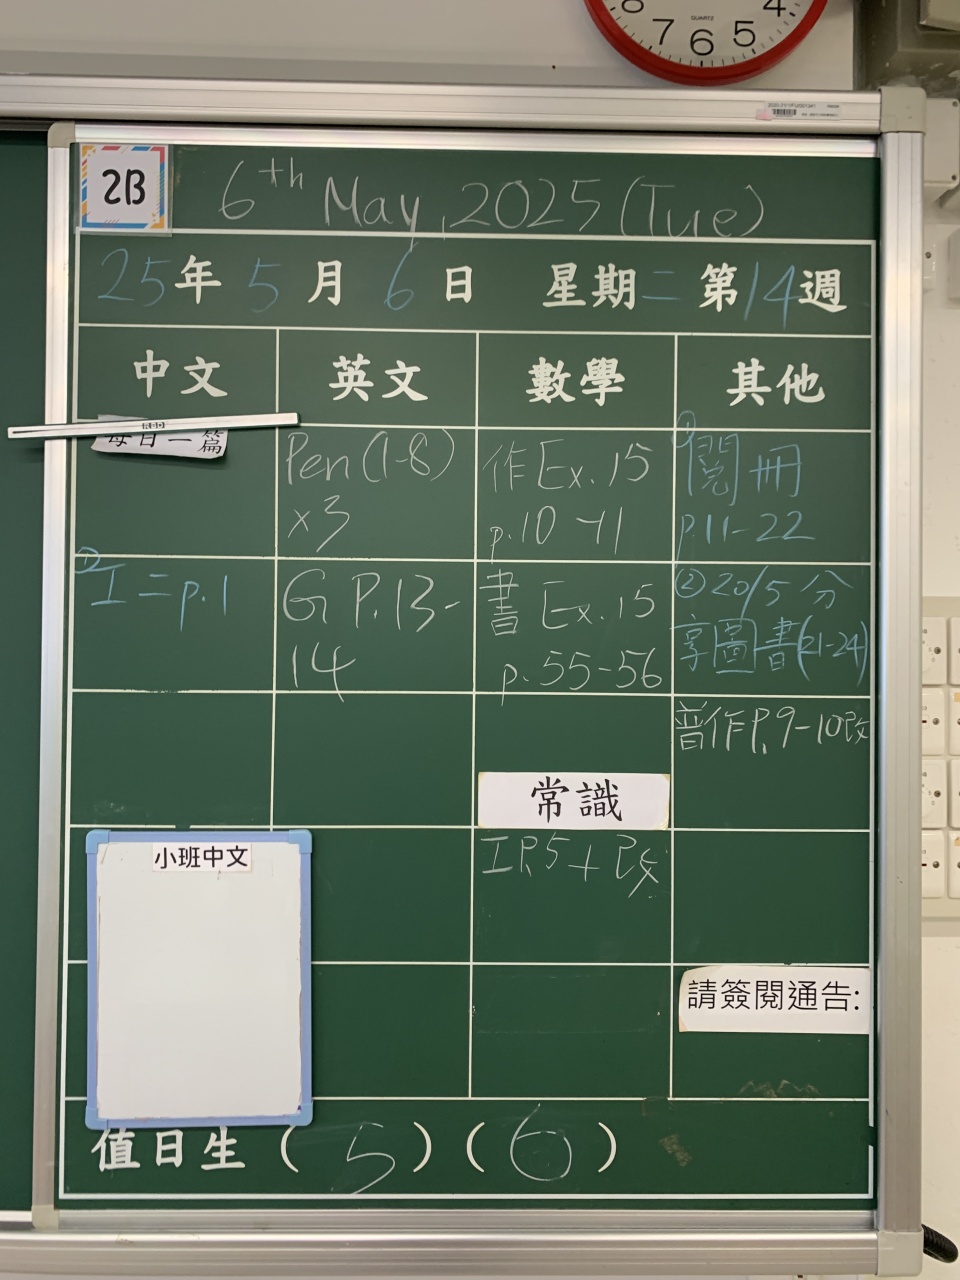 8 7 6 5 4
QUARTZ
2B
6th May, 2025 (Tue)
25年 5月 6日 星期二 第14週
中文 英文 數學 其他
每日一篇
Pen (1-8)
x3
作Ex. 15
p.10-11
① 閱冊
p.11-22
① 工二p.1
G P.13-
14
書 Ex. 15
p.55-56
② 20/5 分
享圖書(21-24)
普作P.9-10改
常識
工P.5+改
小班中文
請簽閱通告:
值日生 ( 5 ) ( 6 )